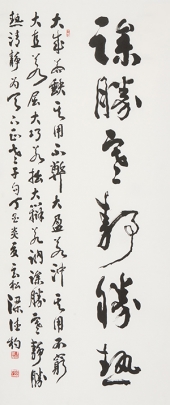 躁勝寒靜勝熱
大成若缺其用不弊大盈若沖其用不窮
大直若屈大巧若拙大辯若訥躁勝寒靜勝
熱清靜為天下正老子句丁亥炎夏